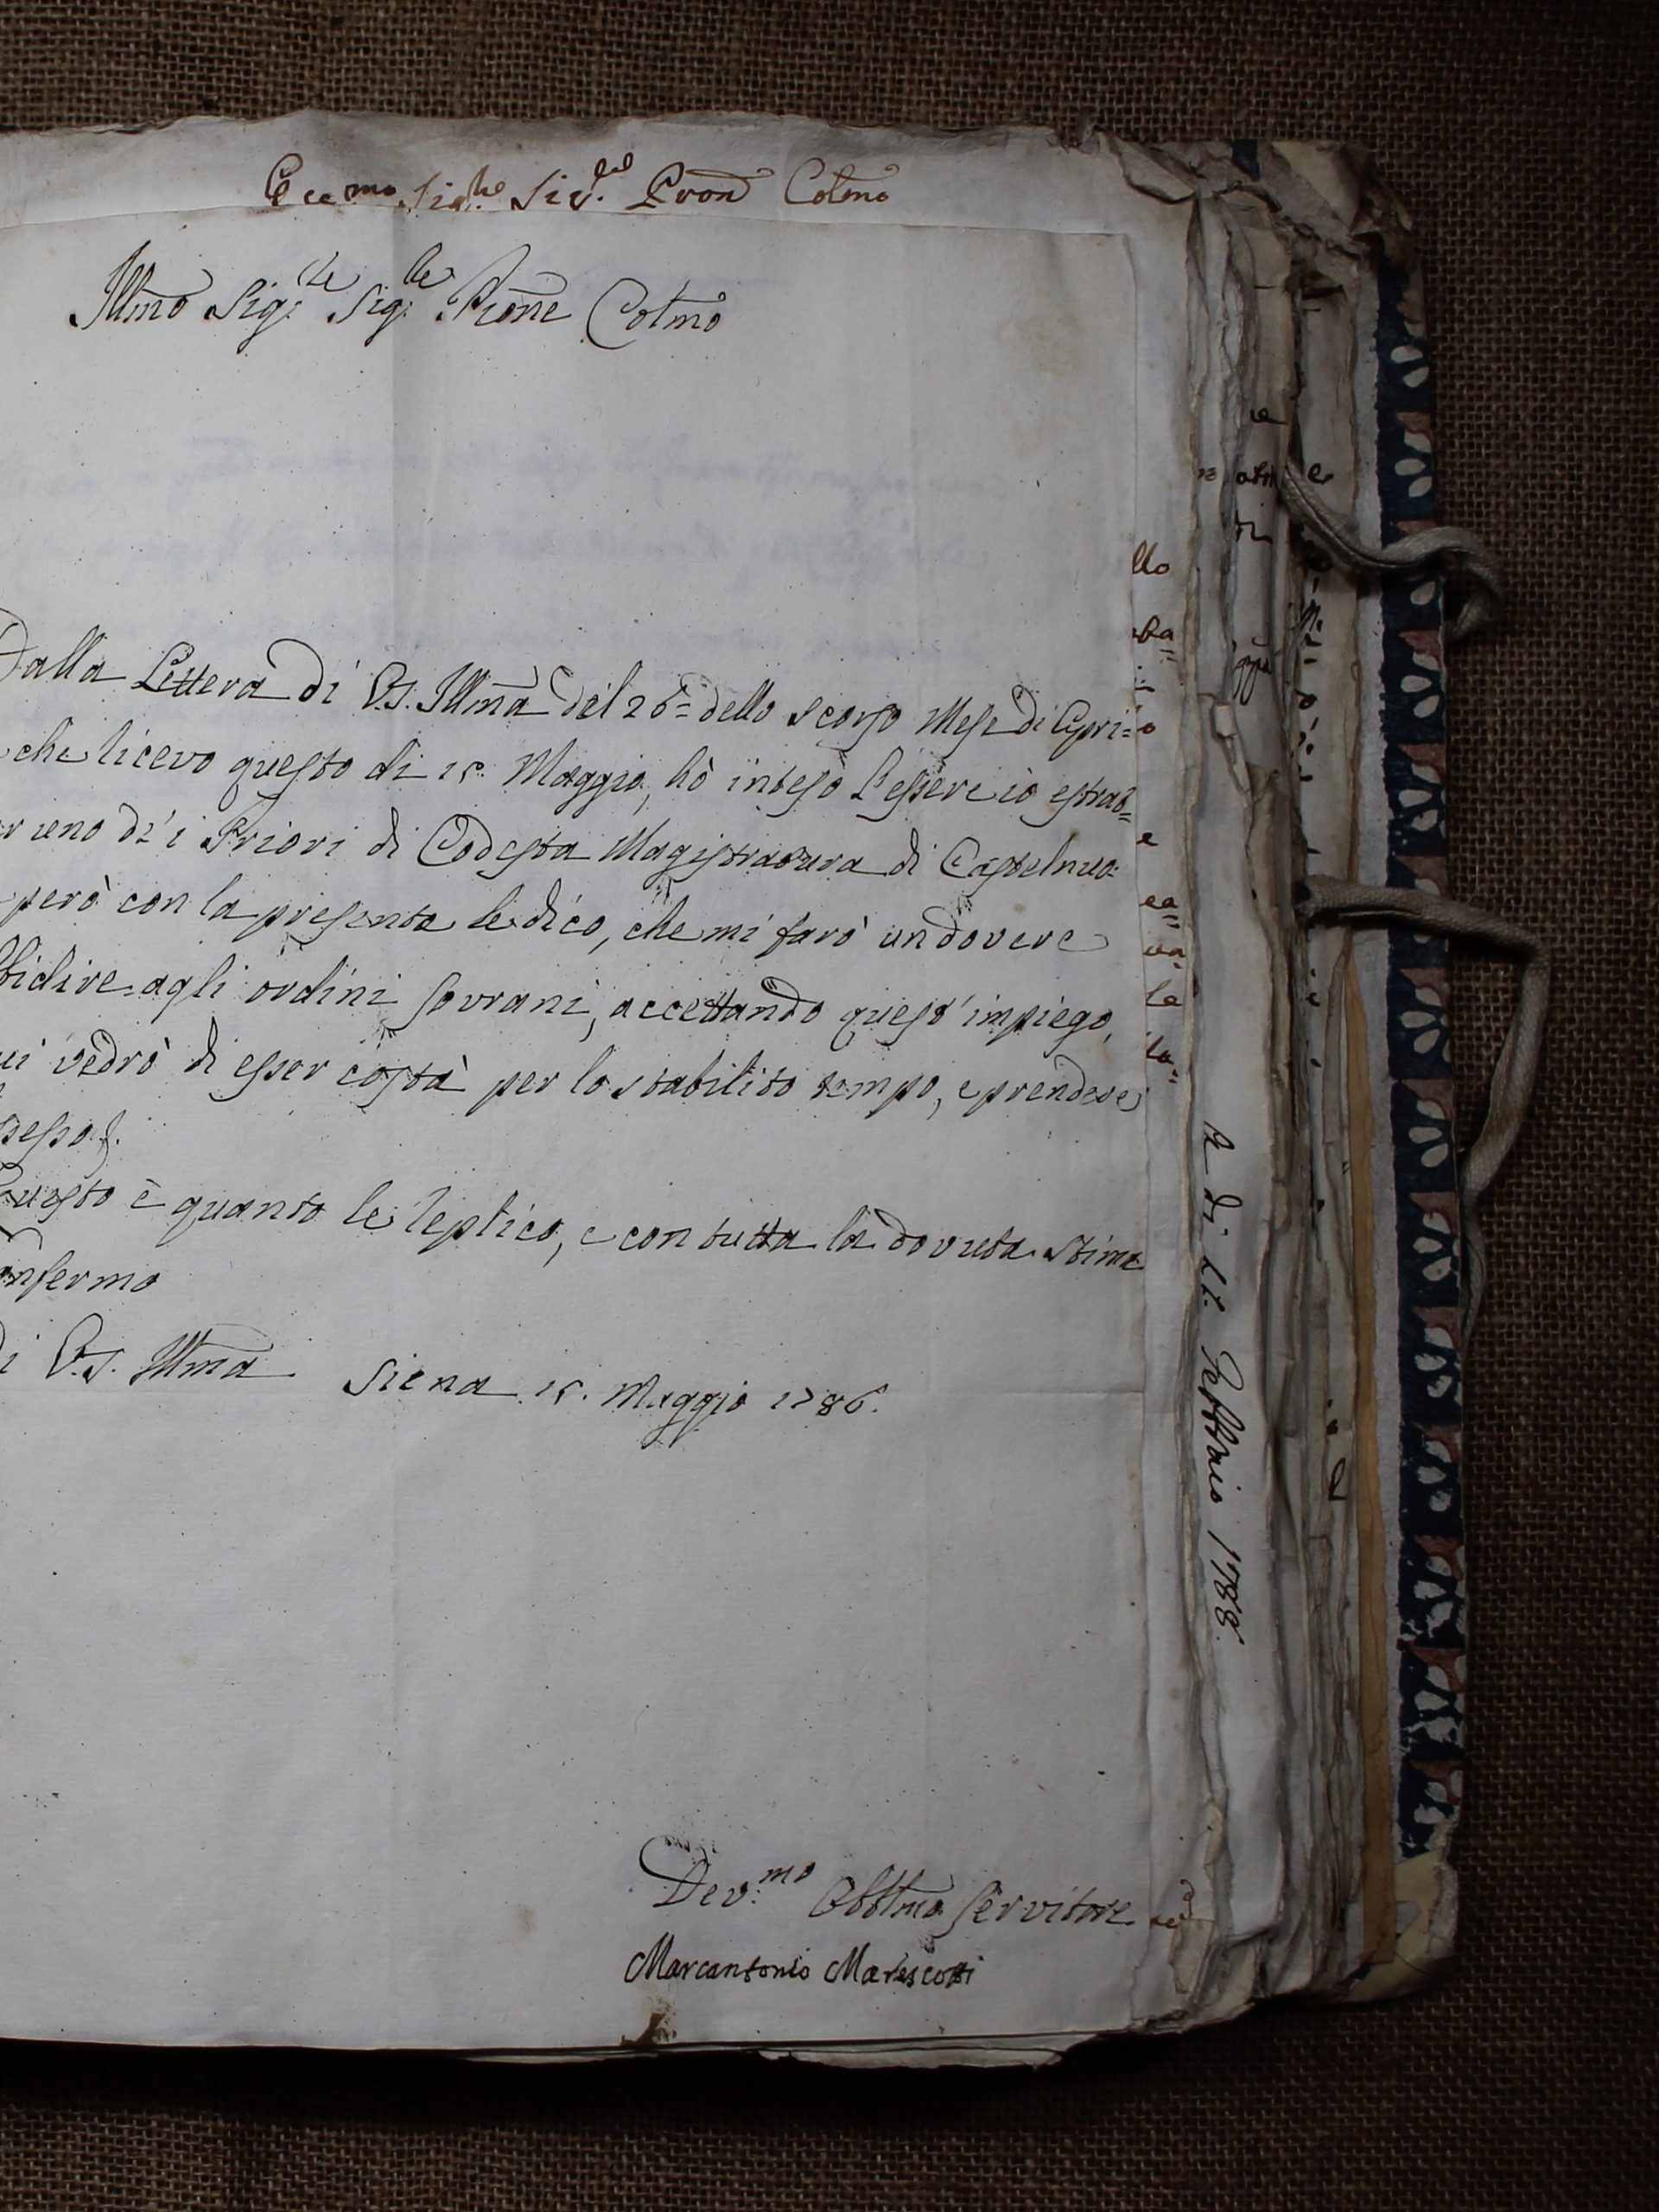 Ecc.mo Sig.re Sig.re Pron Colmo
Illmo Sig.re Sig.re Prone Colmo
Dalla Lettera di V.S. Illma del 26= dello scorso Mese di Apri=
che ricevo questo di 15. Maggio, hò inteso l'essere io estrat=
r uno de' i Priori di Codesta Magistratura di Castelnuo=
però con la presente le dico, che mi farò un dovere
bbidire agli ordini Sovrani, accettando quest' impiego,
ui vedrò di esser costà per lo stabilito tempo, e prendere
ssesso.
Questo è quanto le replico, e con tutta la dovuta stima
onfermo
Di V.S. Illma Siena 15. Maggio 1786.
Dev.mo Obblmo Servitore
Marcantonio Marescotti
llo
ba=
e
ea=
ua=
le
la=
A di 22. Febbraio 1788.